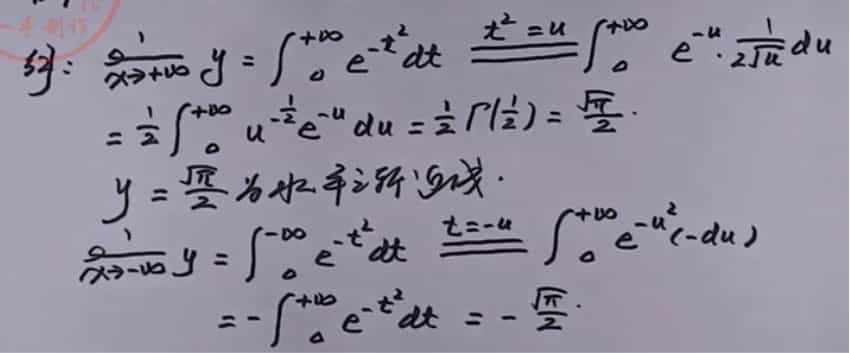 解: lim_{x→+∞} y = ∫_0^{+∞} e^{-t²}dt \overset{t²=u}{=====} ∫_0^{+∞} e^{-u}·\frac{1}{2√u}du
= \frac{1}{2}∫_0^{+∞} u^{-\frac{1}{2}}e^{-u}du = \frac{1}{2}Γ(\frac{1}{2}) = \frac{√π}{2}.
y = \frac{√π}{2} 为水平渐近线.
lim_{x→-∞} y = ∫_0^{-∞} e^{-t²}dt \overset{t=-u}{=====} ∫_0^{+∞} e^{-u²}(-du)
= -∫_0^{+∞} e^{-t²}dt = -\frac{√π}{2}.